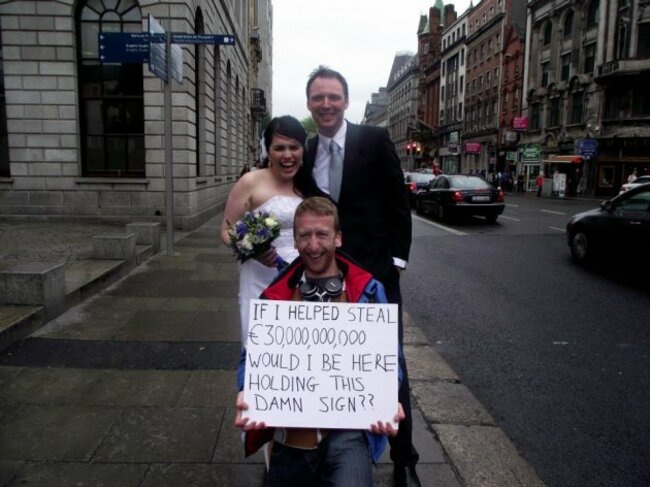 IF I HELPED STEAL
€30,000,000,000
WOULD I BE HERE
HOLDING THIS
DAMN SIGN??